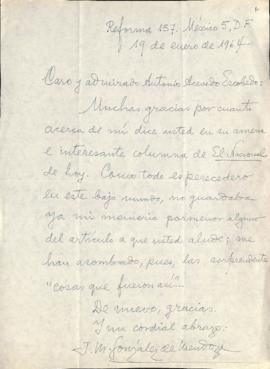 Reforma 157. México 5, D.F.
19 de enero de 1964.
Caro y admirado Antonio Acevedo Escobedo:
Muchas gracias por cuanto
acerca de mí dice usted en su amena
e interesante columna de El Nacional
de hoy. Como todo es perecedero
en este bajo mundo, no guardaba
ya mi memoria pormenor alguno
del artículo a que usted alude; me
han asombrado, pues, las sorprendentes
"cosas que fueron así..."
De nuevo, gracias.
Y un cordial abrazo:
J. M. González de Mendoza